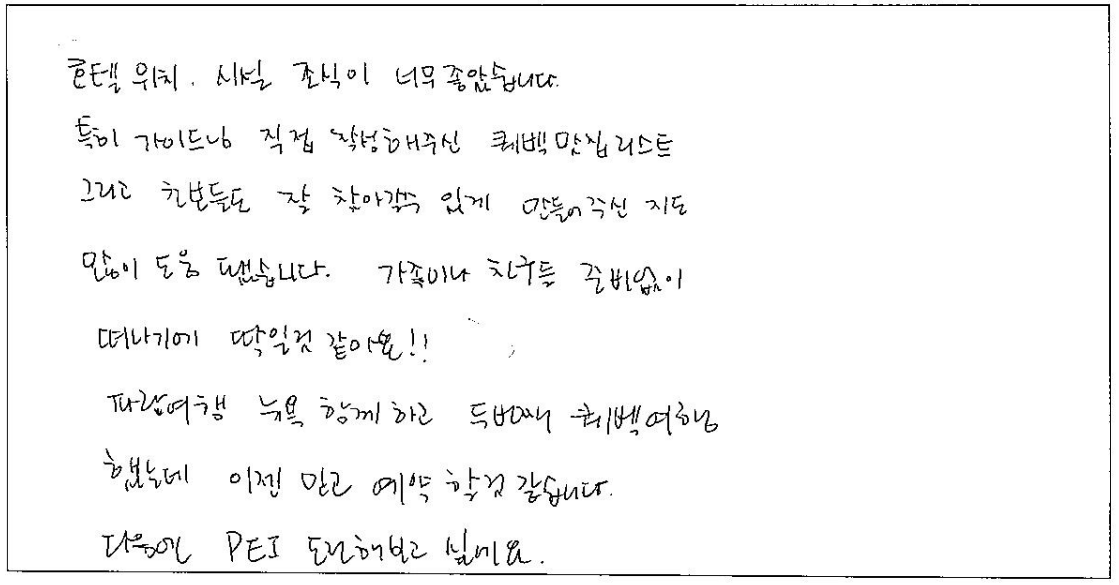 호텔 위치. 시설 조식이 너무 좋았습니다.
특히 가이드님 직접 작성해주신 퀘벡맛집리스트
그리고 초보들도 잘 찾아갈수 있게 만들어주신 지도
많이 도움 됐습니다. 가족이나 친구들 준비없이
떠나기에 딱일것 같아요!!
파랑여행 뉴욕 함께하고 두번째 퀘벡여행
했는데 이젠 믿고 예약 할것 같습니다.
다음엔 PEI 도전해보고 싶네요.